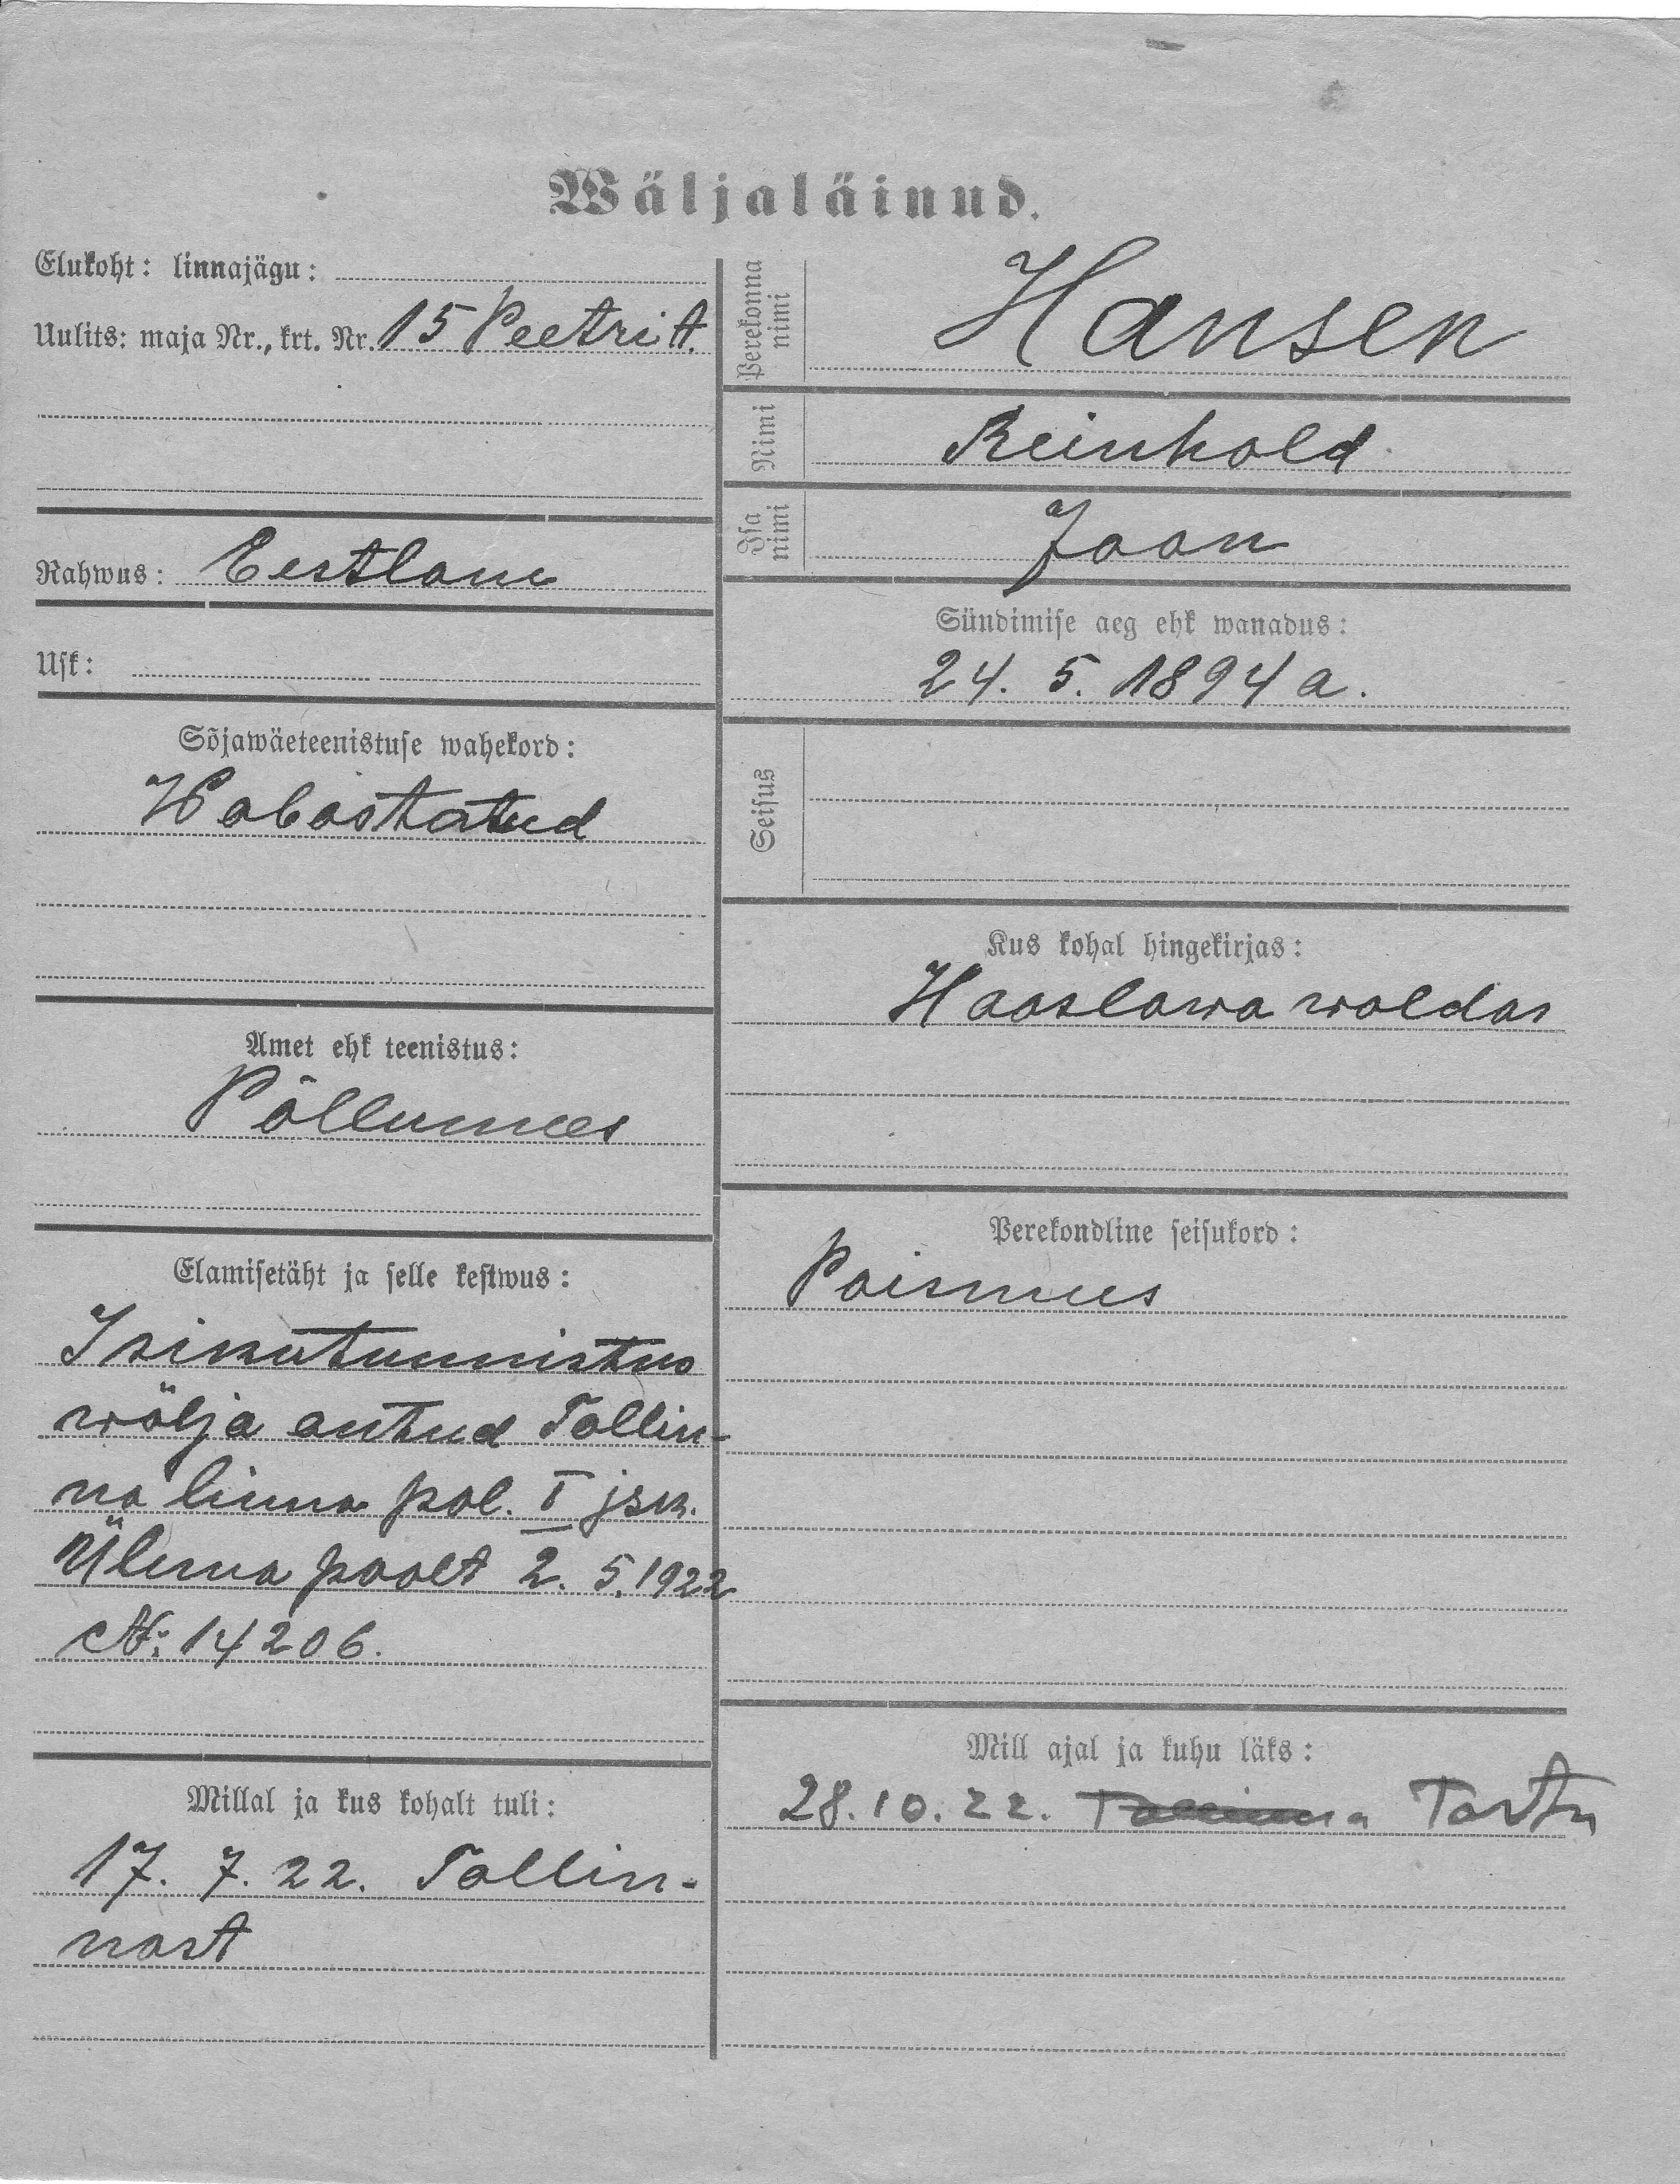 Wäljaläinud.
Elukoht: linnajägu:
Uulits: maja Nr., krt. Nr. 15 Peetri t.
Rahwus: Eestlane
Usk:
Sõjawäeteenistuse wahekord:
Wabastatud
Amet ehk teenistus:
Põllumees
Elamisetäht ja selle kestwus:
Isikutunnistus
wälja antud Tallin-
na linna pol. I jsk.
Ülema poolt 2. 5. 1922
№: 14206.
Millal ja kus kohalt tuli:
17. 7. 22. Tallin-
nast
Perekonna nimi
Hansen
Nimi
Reinhold
Isa nimi
Jaan
Sündimise aeg ehk wanadus:
24. 5. 1894 a.
Seisus
Kus kohal hingekirjas:
Haaslawa wallas
Perekondline seisukord:
Poismees
Mill ajal ja kuhu läks:
28.10.22. Tallinna Tartu